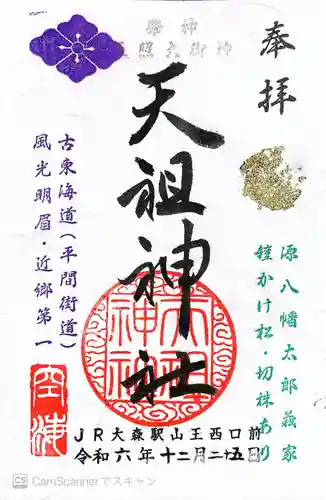 奉拝
神楽
天照大御神
源八幡太郎義家
鎧かけ松・切株あり
天祖神社
古東海道(平間街道)
風光明眉・近郷第一
JR大森駅山王西口前
令和六年十二月二十五日
CS CamScannerでスキャン